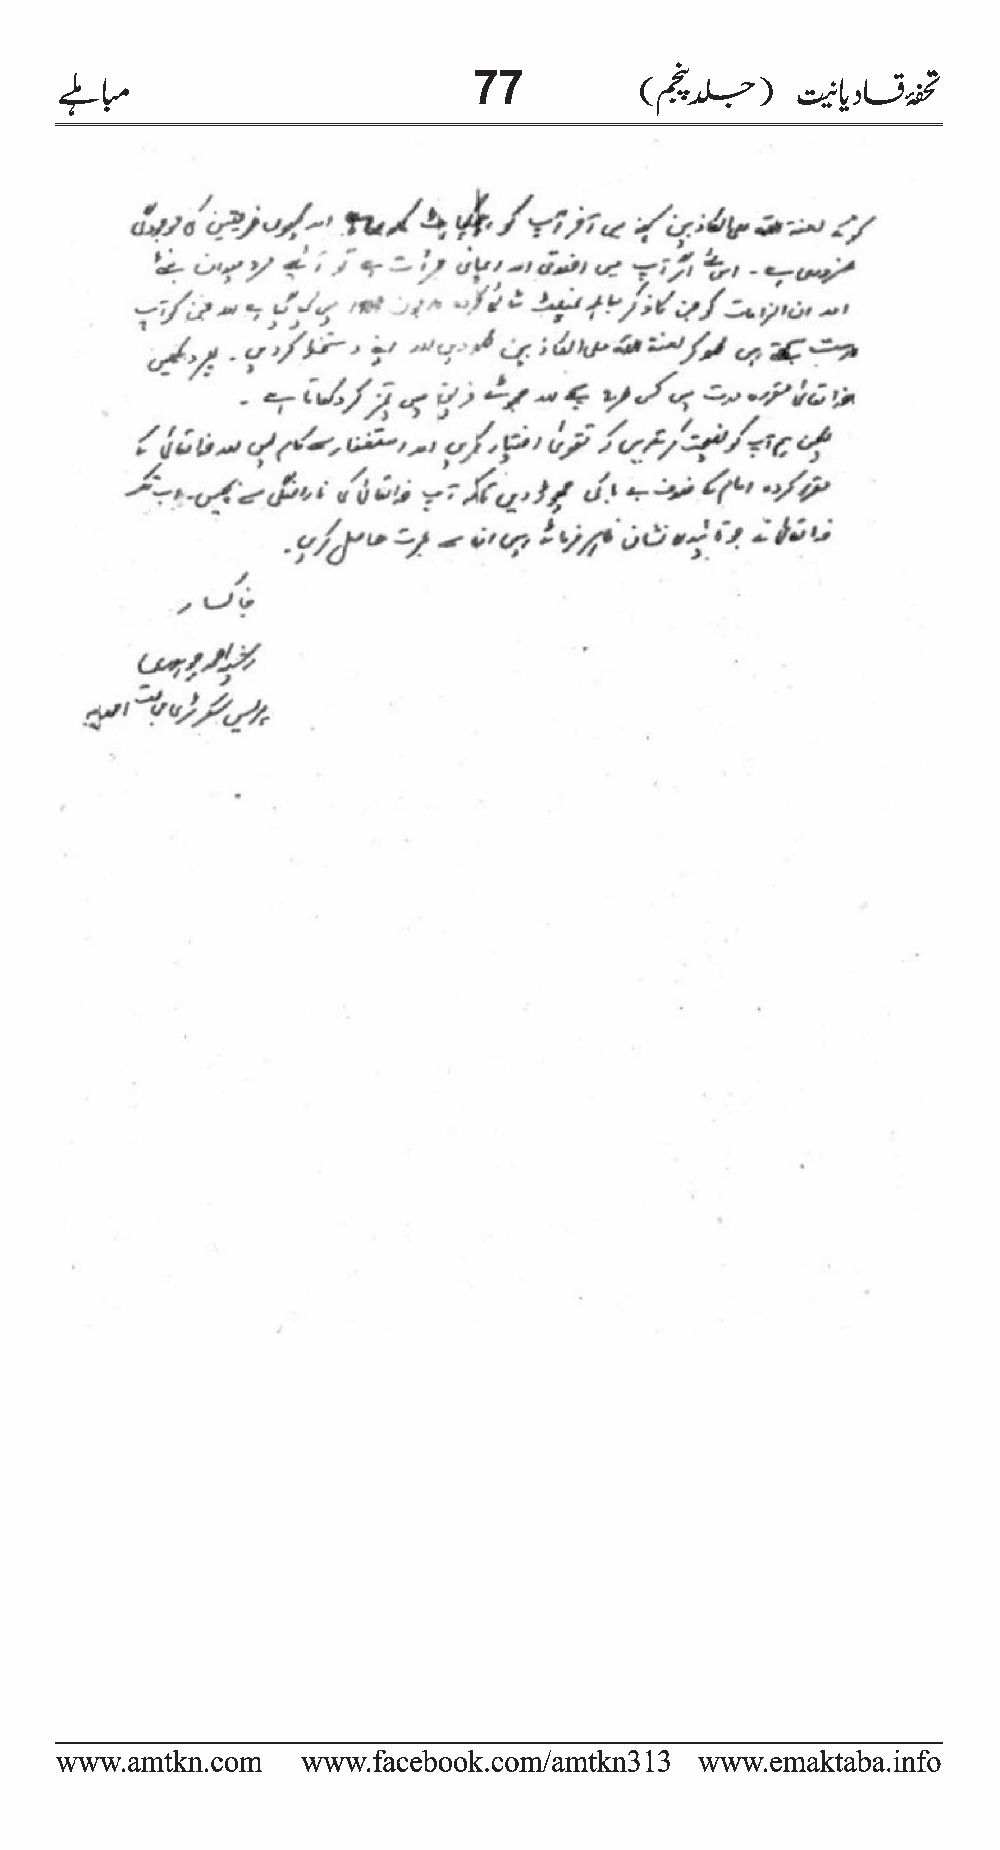 تحفۂ قادیانیت (جلد پنجم) 77 مباہلے
کرتے لعنۃ اللہ علی الکاذبین کہنے میں آخر آپ کو کیا ہچکچاہٹ اور کیوں فریقین کی موجودگی
ضروری ہے۔ اس لئے اگر آپ میں اخلاقی اور ایمانی جرأت ہے تو آئیے مرد میدان بنئے
اور ان الزامات کو جن کا ذکر مباہلہ پمفلٹ شائع کردہ جون میں کیا گیا ہے اور جن کو آپ
درست سمجھتے ہیں لکھ کر لعنۃ اللہ علی الکاذبین لکھ دیں اور اپنے دستخط کر دیں۔ پھر دیکھیں
خدا تعالیٰ مقررہ مدت میں کس طرح سچے اور جھوٹے فریق میں تمیز کر دکھاتا ہے۔
لیکن ہم آپ کو نصیحت کرتے ہیں کہ تقویٰ اختیار کریں اور استغفار سے کام لیں اور خدا تعالیٰ کے
مقرر کردہ امام کے خلاف بے باکی چھوڑ دیں تاکہ آپ خدا تعالیٰ کی ناراضگی سے بچیں۔ اب تک
خدا تعالیٰ نے جو تائیدی نشان ظاہر فرمائے ہیں ان سے عبرت حاصل کریں۔
خاکسار
رشید احمد چوہدری
پریس سیکرٹری جماعت احمدیہ
www.amtkn.com www.facebook.com/amtkn313 www.emaktaba.info